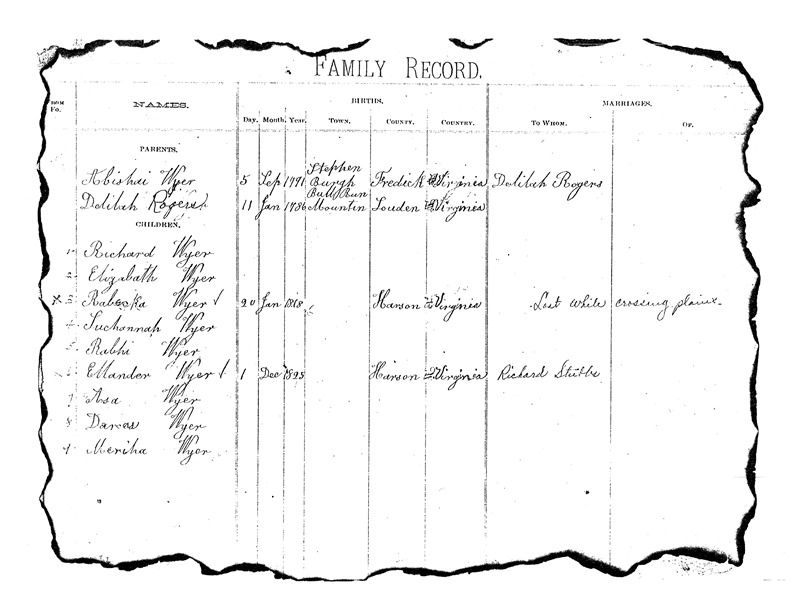 FAMILY RECORD.
NAMES. BIRTHS. MARRIAGES.
Day. Month. Year. Town. County. Country. To Whom. Of.
PARENTS.
Abishai Wyer 5 Sep 1791 Stephen Burgh Fredick Virginia Dolilah Rogers
Dolilah Rogers 11 Jan 1786 Bull Run Mountin Louden Virginia
CHILDREN.
1 Richard Wyer
2 Elizabath Wyer
X 3 Rabecka Wyer 20 Jan 1818 Harson Virginia Lost while crossing plains.
4 Suchannah Wyer
5 Rabhi Wyer
Ellander Wyer 1 Dec 1825 Harson Virginia Richard Stubbs
7 Asa Wyer
8 Wyer
Meriha Wyer